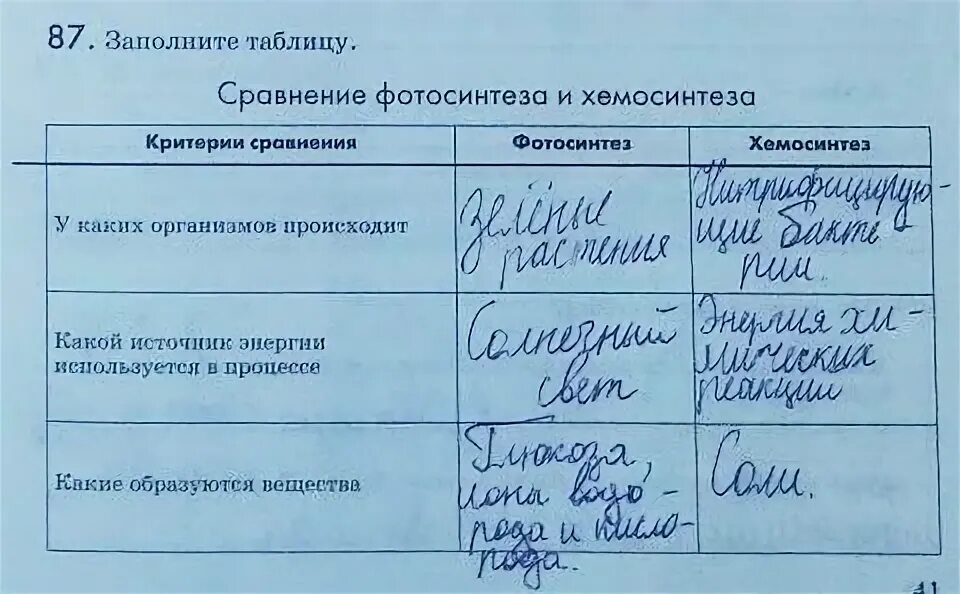 87. Заполните таблицу.
Сравнение фотосинтеза и хемосинтеза
Критерии сравнения Фотосинтез Хемосинтез
У каких организмов происходит
Зелёные
растения
Нитрифицирую-
щие бакте
рии.
Какой источник энергии
используется в процессе
Солнечный
свет
Энергия хи-
мических
реакции
Какие образуются вещества
Глюкоза,
ионы водо-
рода и кисло-
рода.
Соли.
41